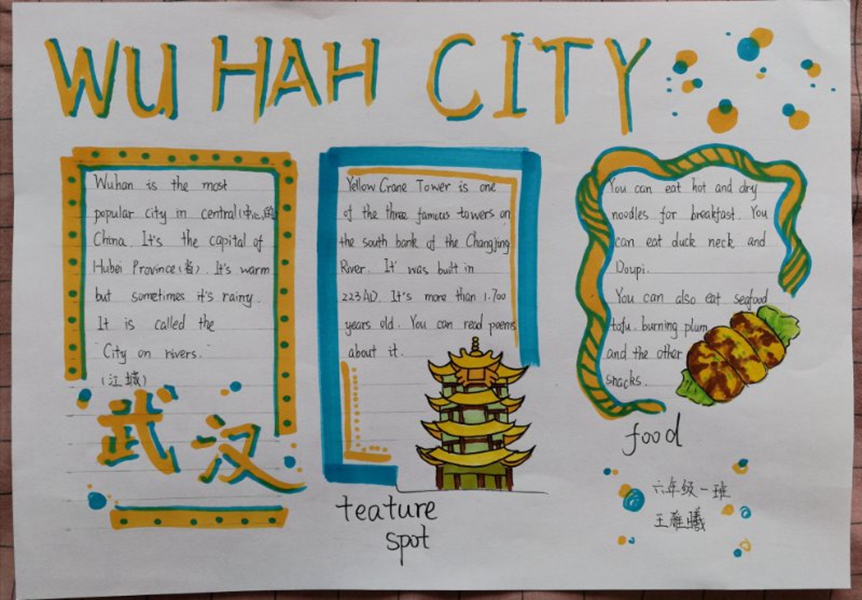 WU HAH CITY
Wuhan is the most
popular city in central(中心的)
China. It's the capital of
Hubei Province(省). It's warm
but sometimes it's rainy.
It is called the
"City on rivers."
(江城)
武汉
Yellow Crane Tower is one
of the three famous towers on
the south bank of the Changjing
River. It was built in
223 AD. It's more than 1.700
years old. You can read poems
about it.
teature
spot
You can eat hot and dry
noodles for breakfast. You
can eat duck neck and
Doupi.
You can also eat seafood
tofu. burning plum
and the other
snacks.
food
六年级一班
王雅曦